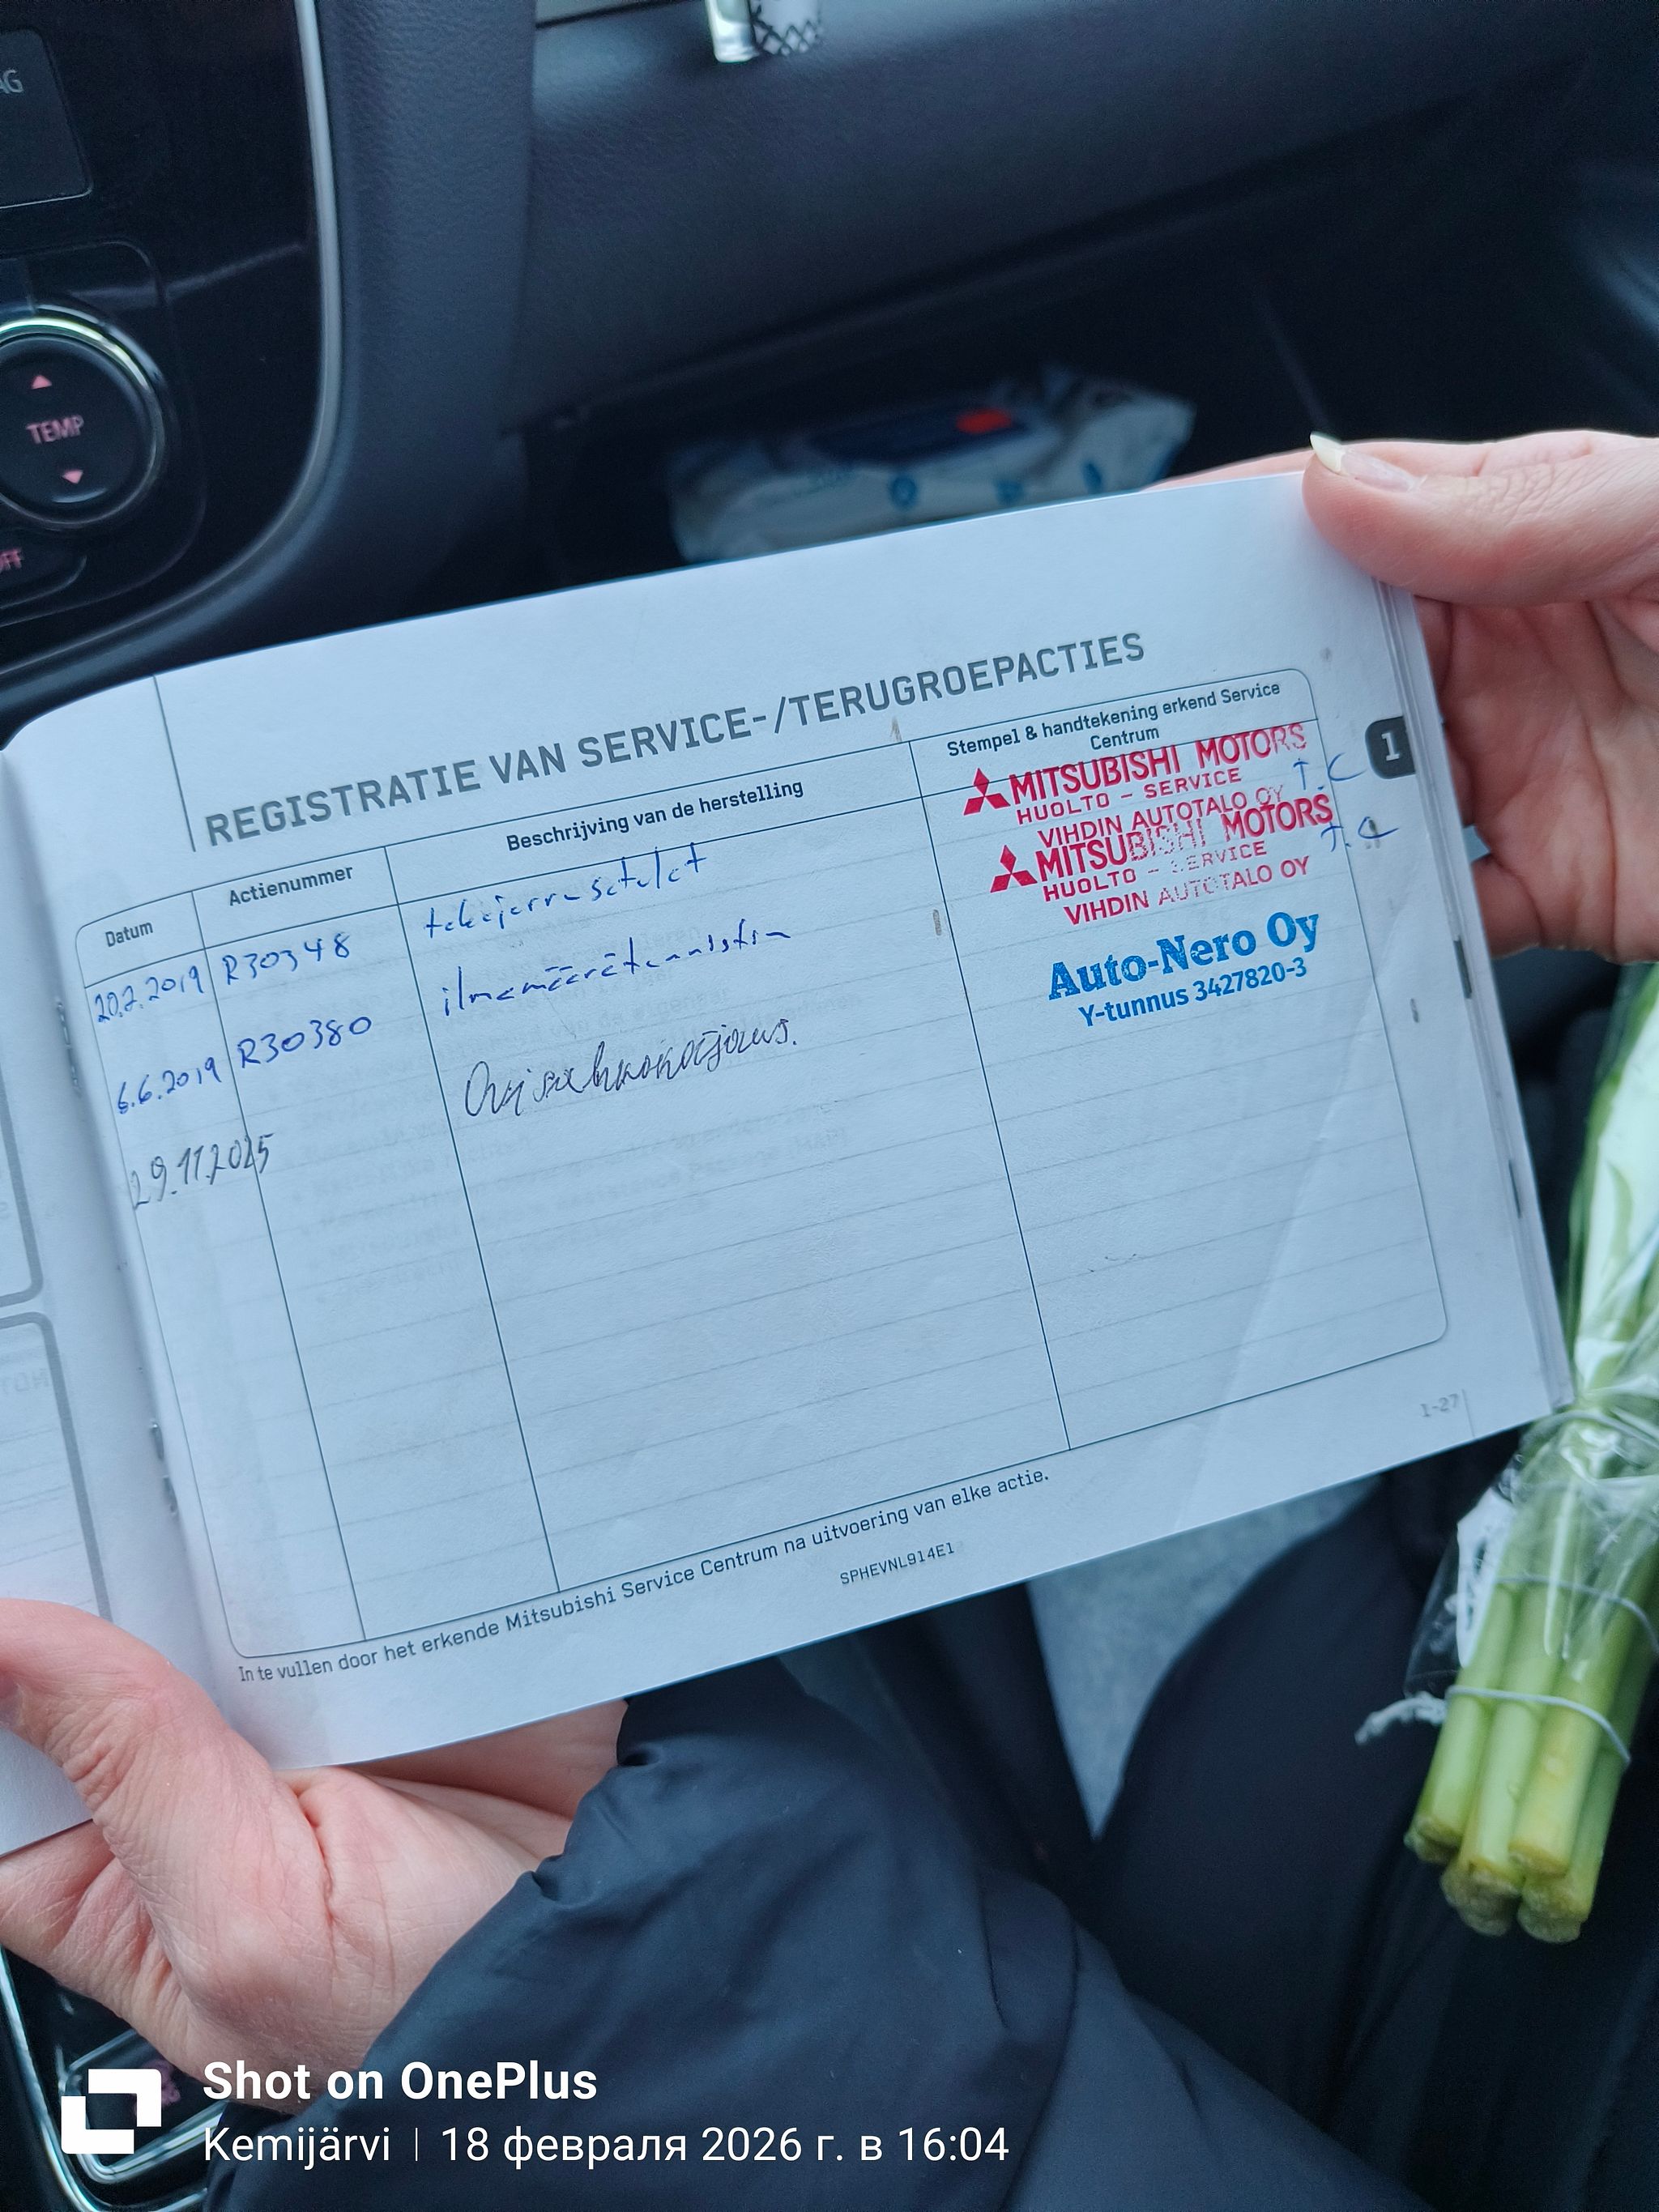 AG
TEMP
OFF
REGISTRATIE VAN SERVICE-/TERUGROEPACTIES
Datum
Actienummer
Beschrijving van de herstelling
Stempel & handtekening erkend Service
Centrum
20.2.2019 R30348 takajarrusatulat
MITSUBISHI MOTORS
HUOLTO - SERVICE
VIHDIN AUTOTALO OY
6.6.2019 R30380 ilmamäärätunnistin
MITSUBISHI MOTORS
HUOLTO - SERVICE
VIHDIN AUTOTALO OY
29.11.2025
Auto-Nero Oy
Y-tunnus 3427820-3
1
1-27
In te vullen door het erkende Mitsubishi Service Centrum na uitvoering van elke actie.
SPHEVNL914E1
Shot on OnePlus
Kemijärvi | 18 февраля 2026 г. в 16:04